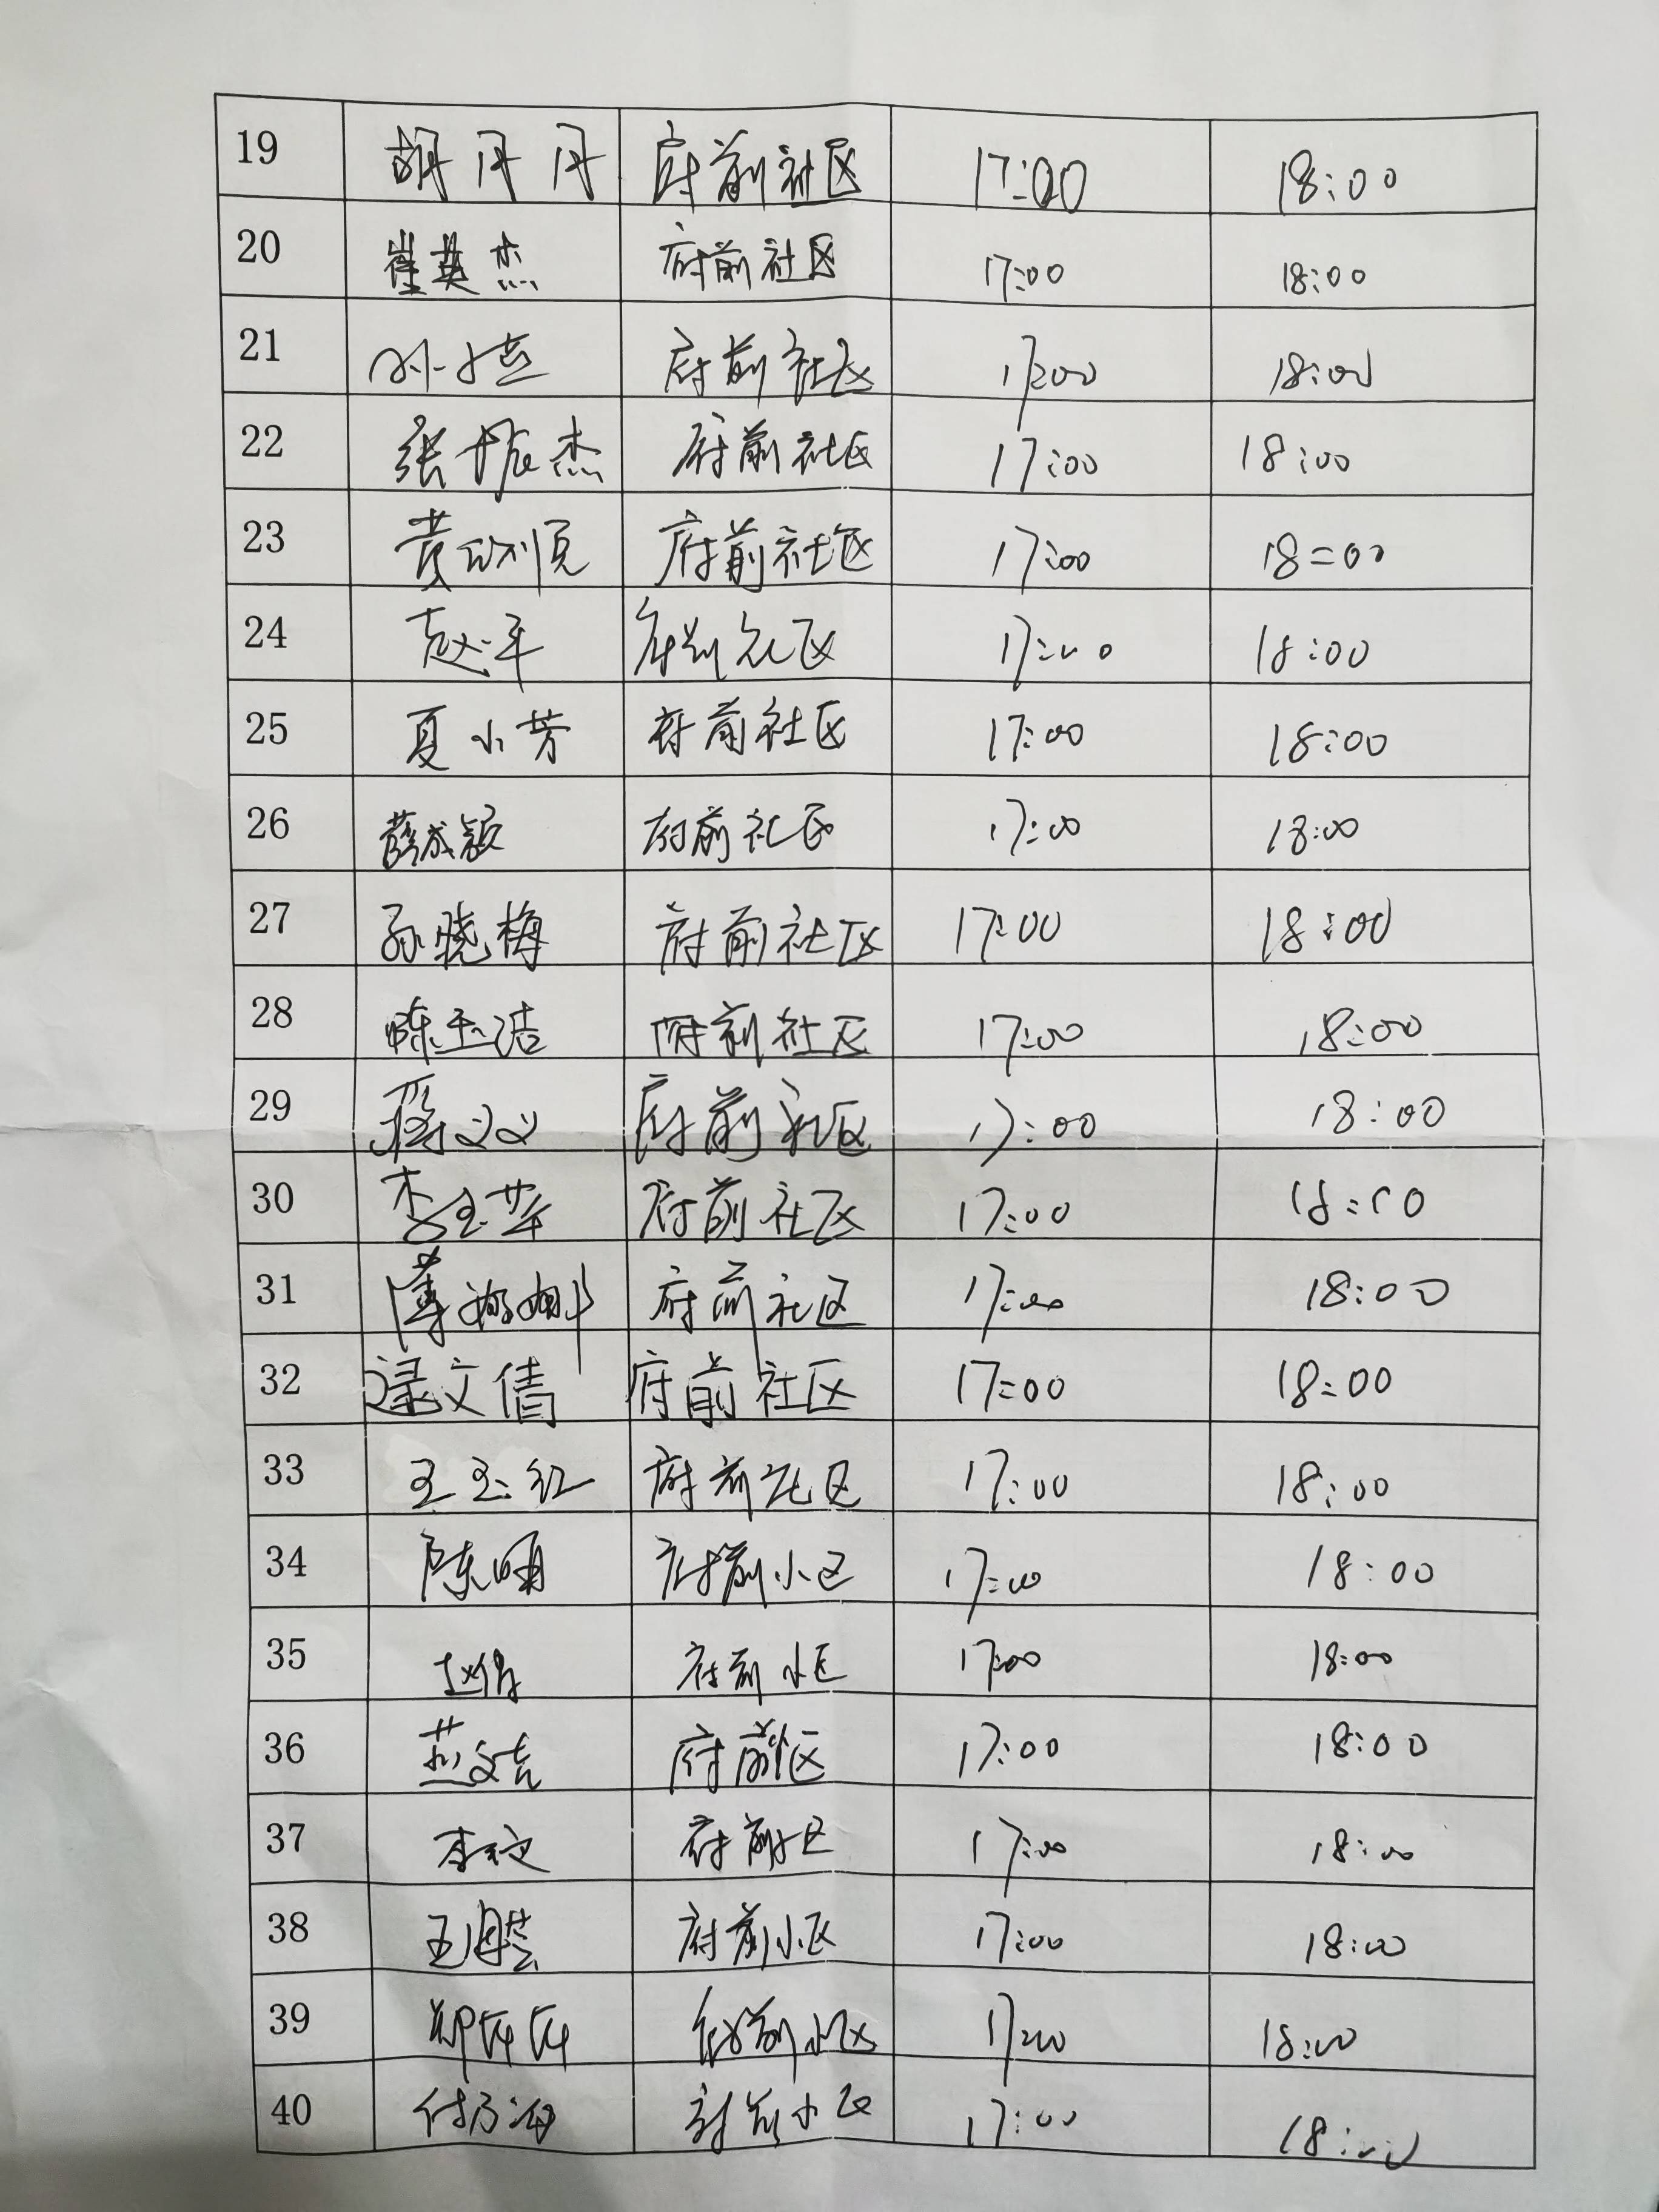 19 胡丹丹 府前社区 17:00 18:00
20 崔英杰 府前社区 17:00 18:00
21 府前社区 17:00 18:00
22 张振杰 府前社区 17:00 18:00
23 黄 府前社区 17:00 18:00
24 赵平 府前社区 17:00 18:00
25 夏小芳 府前社区 17:00 18:00
26 薛成颖 府前社区 17:00 18:00
27 孙晓梅 府前社区 17:00 18:00
28 陈玉洁 府前社区 17:00 18:00
29 府前社区 17:00 18:00
30 李玉华 府前社区 17:00 18:00
31 薄娜娜 府前社区 17:00 18:00
32 逯文倩 府前社区 17:00 18:00
33 王玉红 府前社区 17:00 18:00
34 陈明 府前小区 17:00 18:00
35 府前小区 17:00 18:00
36 府前小区 17:00 18:00
37 李文 府前小区 17:00 18:00
38 府前小区 17:00 18:00
39 府前小区 17:00 18:00
40 府前小区 17:00 18:00